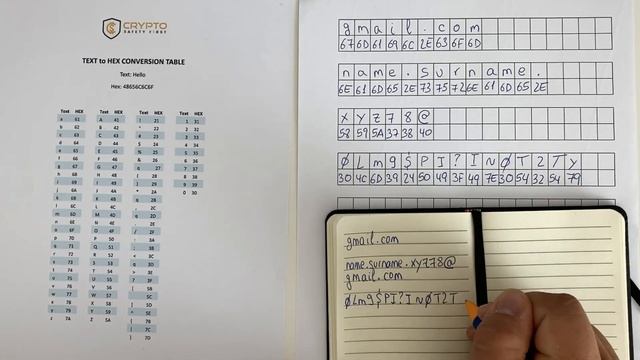 CRYPTO
SAFETY FIRST
TEXT to HEX CONVERSION TABLE
Text: Hello
Hex: 48656C6C6F
Text HEX Text HEX Text HEX Text HEX
a 61 A 41 ! 21 1 31
b 62 B 42 " 22 2 32
c 63 C 43 # 23 3 33
d 64 D 44 $ 24 4 34
e 65 E 45 % 25 5 35
f 66 F 46 & 26 6 36
g 67 G 47 ' 27 7 37
h 68 H 48 ( 28 8 38
i 69 I 49 ) 29 9 39
j 6A J 4A * 2A 0 30
k 6B K 4B + 2B
l 6C L 4C , 2C
m 6D M 4D - 2D
n 6E N 4E . 2E
o 6F O 4F / 2F
p 70 P 50
q 71 Q 51
r 72 R 52
s 73 S 53
t 74 T 54
u 75 U 55
v 76 V 56
w 77 W 57
x 78 X 58
y 79 Y 59 ^ 5E
z 7A Z 5A { 7B
| 7C
} 7D
g m a i l . c o m
67 6D 61 69 6C 2E 63 6F 6D
n a m e . s u r n a m e .
6E 61 6D 65 2E 73 75 72 6E 61 6D 65 2E
x y z 7 8 @
58 59 5A 37 38 40
0 L m 9 $ P I ? I ~ 0 T 2 T y
30 4C 6D 39 24 50 49 3F 49 7E 30 54 32 54 79
gmail.com
name.surname.xy778@
gmail.com
0Lm9$PI?I~0T2T